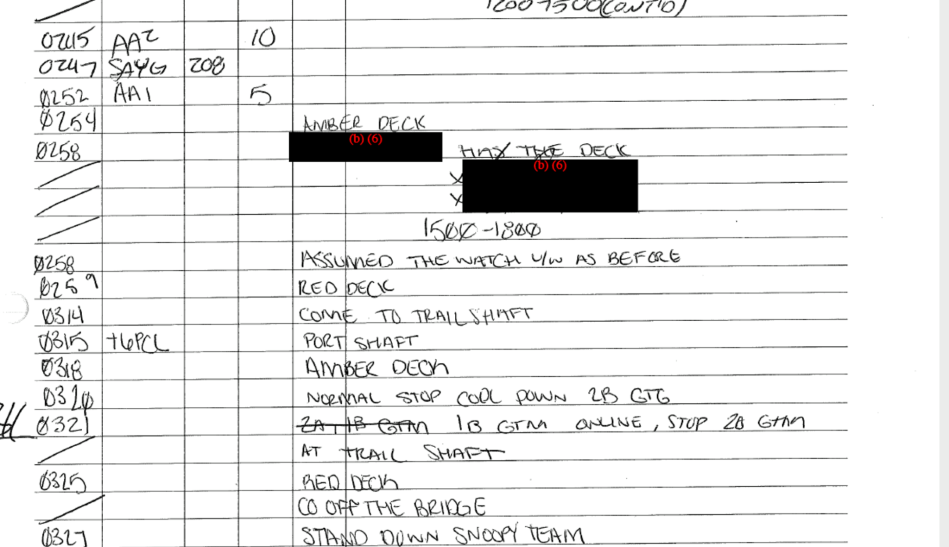 1200-1500 (CONT'D)
0245 AA2 10
0247 SAYG 208
0252 AA1 5
0254 AMBER DECK
(b) (6)
0258 HAX THE DECK
(b) (6)
X
X
1500-1800
0258 ASSUMED THE WATCH U/W AS BEFORE
0259 RED DECK
0314 COME TO TRAIL SHAFT
0315 +6PCL PORT SHAFT
0318 AMBER DECK
0320 NORMAL STOP COOL DOWN 2B GTG
0321 2A 1B GTM 1B GTM ONLINE, STOP 2B GTM
AT TRAIL SHAFT
0325 RED DECK
CO OFF THE BRIDGE
0327 STAND DOWN SNOOPY TEAM